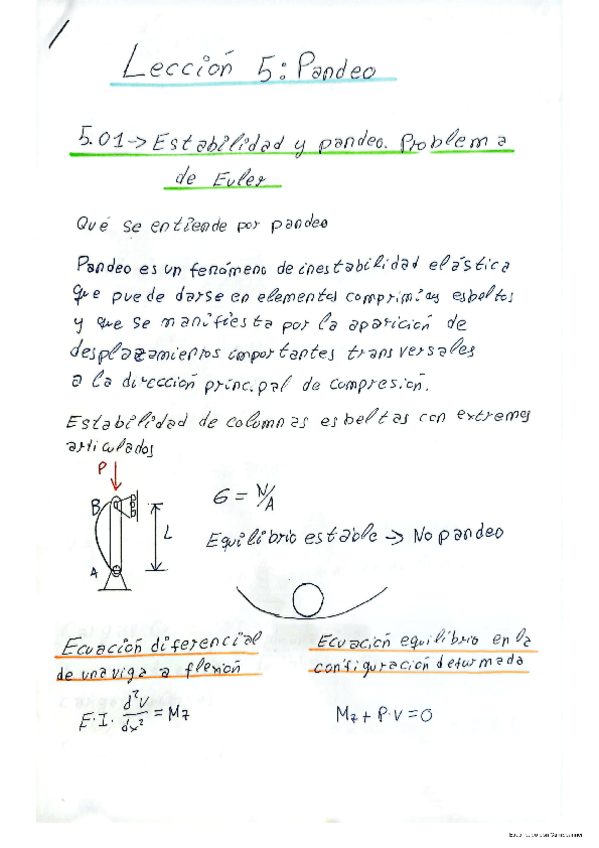 Lección 5: Pandeo
5.01 → Estabilidad y pandeo. Problema
de Euler
Qué se entiende por pandeo
Pandeo es un fenómeno de inestabilidad elástica
que puede darse en elementos comprimidos esbeltos
y que se manifiesta por la aparición de
desplazamientos importantes transversales
a la dirección principal de compresión.
Estabilidad de columnas esbeltas con extremos
articulados
P
B
L
A
σ = N/A
Equilibrio estable → No pandeo
Ecuación diferencial
de una viga a flexión
E·I· d²v/dx² = Mz
Ecuación equilibrio en la
configuración deformada
Mz + P·v = 0